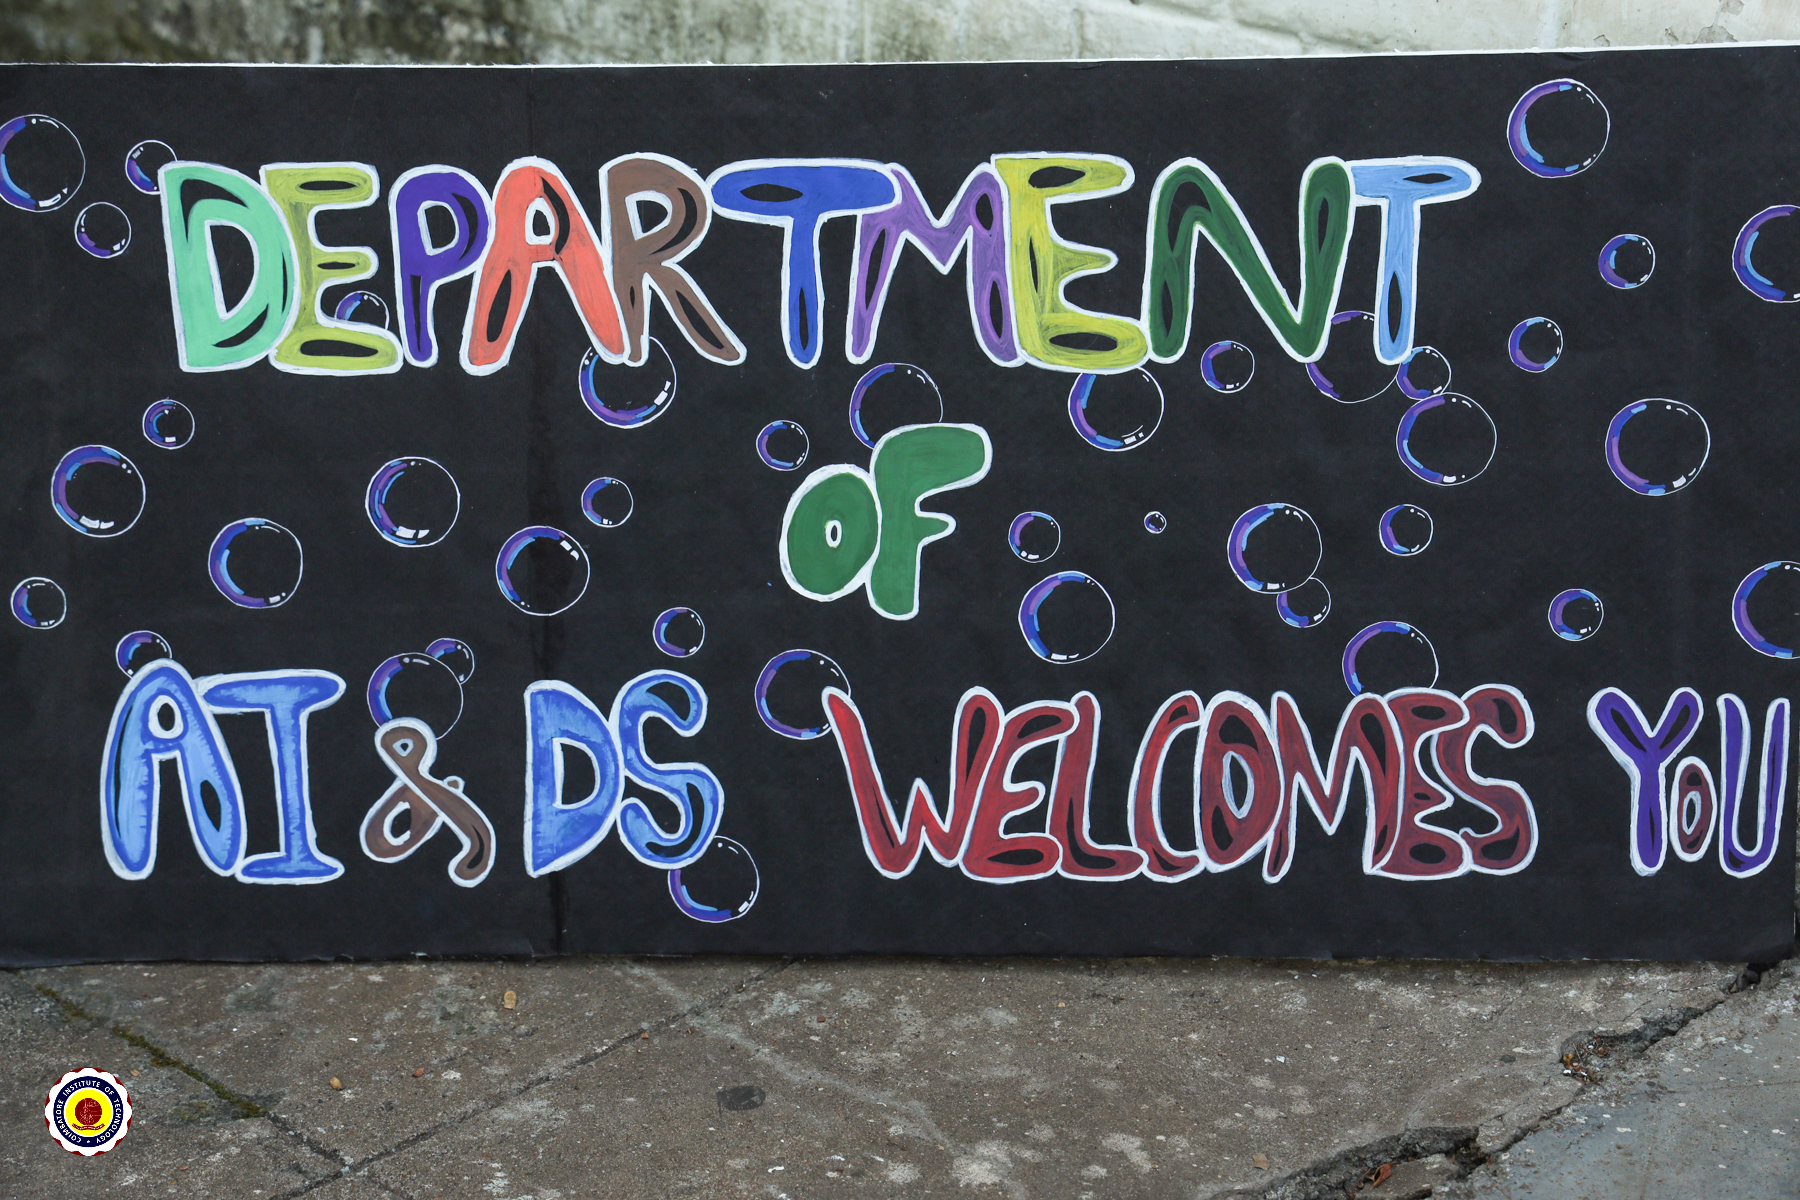 DEPARTMENT
OF
AI & DS WELCOMES YoU
COIMBATORE INSTITUTE OF TECHNOLOGY